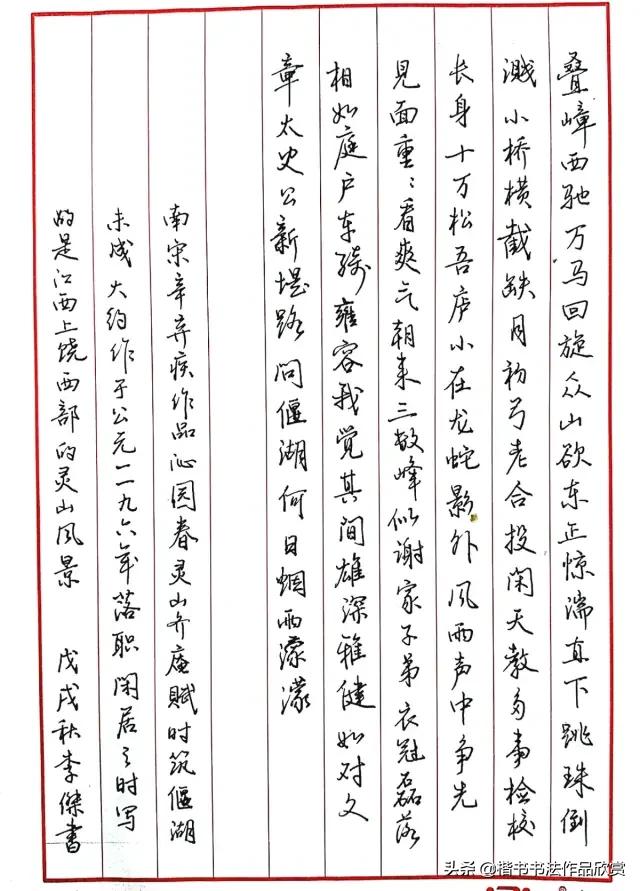 叠嶂西驰万马回旋众山欲东正惊湍直下跳珠倒
溅小桥横截缺月初弓老合投闲天教多事检校
长身十万松吾庐小在龙蛇影外风雨声中争先
见面重：看爽气朝来三数峰似谢家子弟衣冠磊落
相如庭户车骑雍容我觉其间雄深雅健如对文
章太史公新堤路问偃湖何日烟雨濛濛
南宋辛弃疾作品沁园春灵山齐庵赋时筑偃湖
未成大约作于公元一一九六年落职闲居之时写
的是江西上饶西部的灵山风景 戊戌秋李傑書
头条 @楷书书法作品欣赏